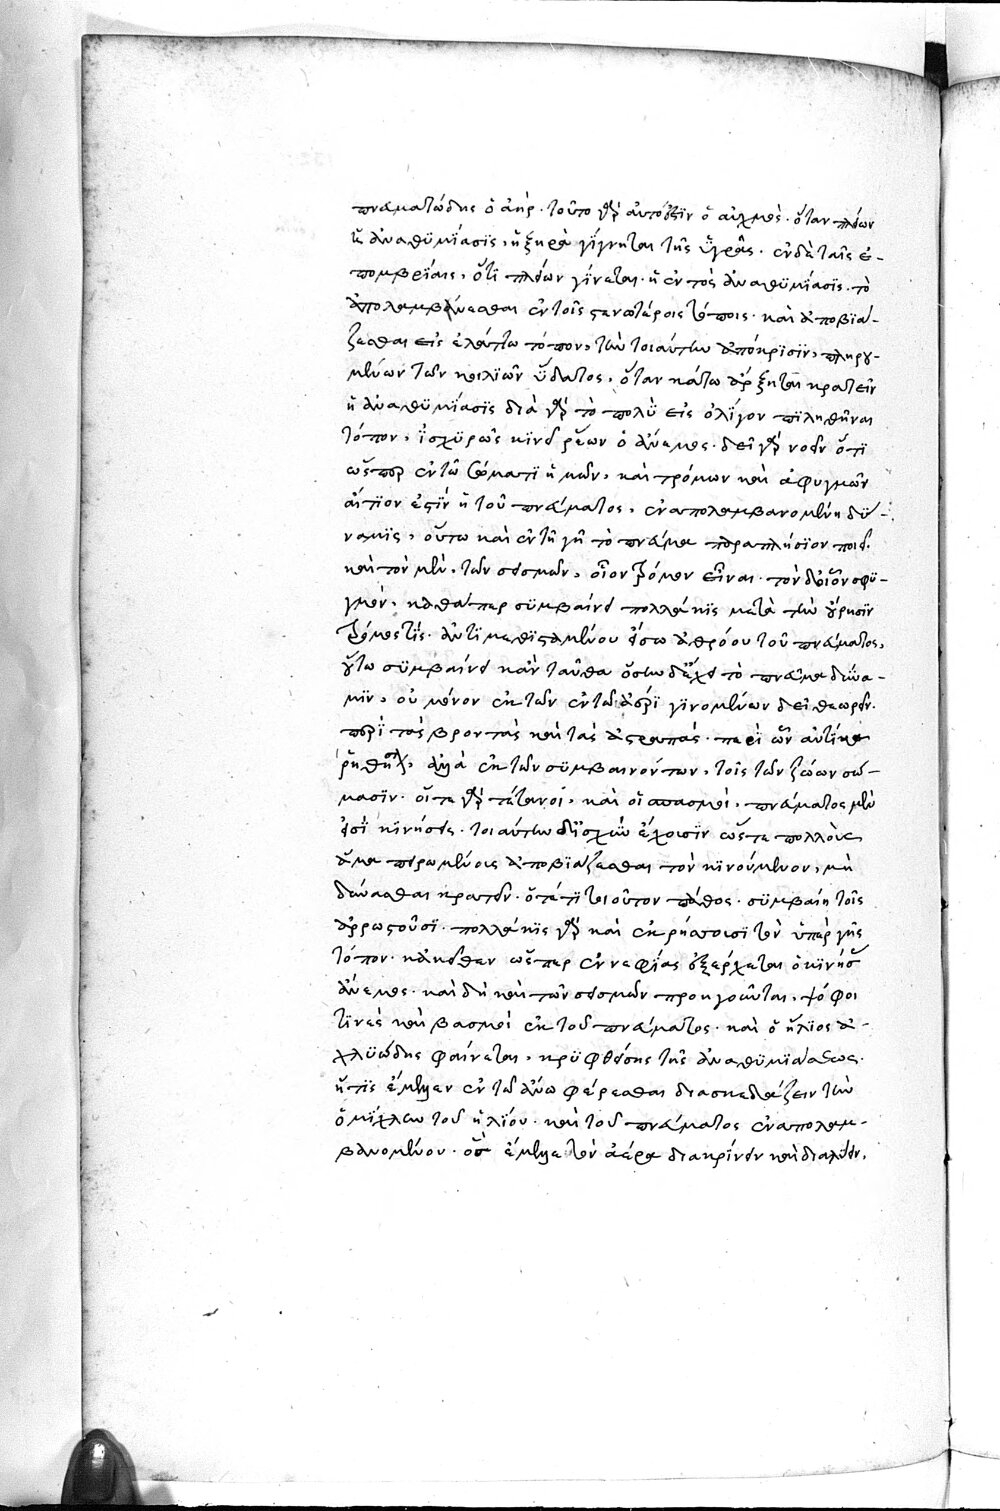 πνευματώδης ὁ ἀήρ· τοῦτο γάρ αὐτό ἐστιν ὁ αὐχμὸς· ὅταν πλέων
ἡ ἀναθυμίασις, ἡ ξηρὰ γίγνηται τῆς ὑγρᾶς· ἐν δὲ ταῖς ἐ-
πομβρίαις, ὅτι πλέων γίνεται· ἡ ἐντὸς ἀναθυμίασις· τὸ
ἀπολαμβάνεσθαι ἐν τοῖς στενωτέροις τόποις· καὶ ἀποβιά-
ζεσθαι εἰς ἐλάττω τόπον, τὴν τοιαύτην ἀπόκρισιν, πληρου-
μένων τῶν κοιλιῶν ὕδατος, ὅταν κάτω ἄρξηται κρατεῖν
ἡ ἀναθυμίασις διὰ γάρ τὸ πολὺ εἰς ὀλίγον πιληθῆναι
τόπον, ἰσχυρῶς κινεῖ ῥέων ὁ ἄνεμος· δεῖ γάρ νοεῖν ὅτι
ὥσπερ ἐν τῶ σώματι ἡμῶν, καὶ τρόμων καὶ σφυγμῶν
αἴτιον ἐστὶν ἡ τοῦ πνεύματος, ἐναπολαμβανομένη δύ-
ναμις, οὕτω καὶ ἐν τῆ γῆ τὸ πνεῦμα παραπλήσιον ποιεῖ.
καὶ τὸν μὲν, τῶν σεισμῶν, οἷον τρόμον εἶναι· τὸν δὲ οἷον σφυ-
γμὸν, καθάπερ συμβαίνει πολλάκις μετὰ τὴν οὔρησιν
τρόμος τίς· ἀντιμεθισταμένου ἔσω ἀθρόου τοῦ πνεύματος,
οὕτω συμβαίνει κἀνταῦθα ὅσην δὲ ἔχει τὸ πνεῦμα δύνα-
μιν, οὐ μόνον ἐκ τῶν ἐν τῶ ἀέρι γινομένων δεῖ θεωρεῖν.
περὶ τὰς βροντὰς καὶ τὰς ἀστραπάς· περὶ ὧν αὐτίκα
ῥηθήσεται, ἀλλὰ ἐκ τῶν συμβαινόντων, τοῖς τῶν ζώων σώ-
μασιν· οἵ τε γάρ τέτανοι, καὶ οἱ σπασμοὶ, πνεύματος μὲν
εἰσὶ κινήσεις· τοιαύτην δὲ ἰσχὺν ἔχουσιν ὥστε πολλοὺς
ἅμα πειρωμένους ἀποβιάζεσθαι τὸν κινούμενον, μὴ
δύνασθαι κρατεῖν· ὅτέ τι τοιοῦτον πάθος· συμβαίη τοῖς
ἀρρωστοῦσι· πολλάκις γάρ καὶ ἐκρήσσουσι τὸν ὑπὲρ γῆς
τόπον· κἀκεῖθεν ὥσπερ ἐκνεφίας ἐξέρχεται ὁ κινήσας
ἄνεμος· καὶ δὴ καὶ τῶν σεισμῶν προηγοῦνται, ψόφοι
τινὲς καὶ βρασμοὶ ἐκ τοῦ πνεύματος· καὶ ὁ ἥλιος ἀ-
χλυώδης φαίνεται, κρυφθείσης τῆς ἀναθυμιάσεως.
ἥτις ἔμελλεν ἐν τῶ ἄνω φέρεσθαι διασκεδάζειν τὴν
ὀμίχλην τοῦ ἡλίου· καὶ τοῦ πνεύματος ἐναπολαμ-
βανομένου· ὃς ἔμελλε τὸν ἀέρα διακρίνειν καὶ διαλύειν,